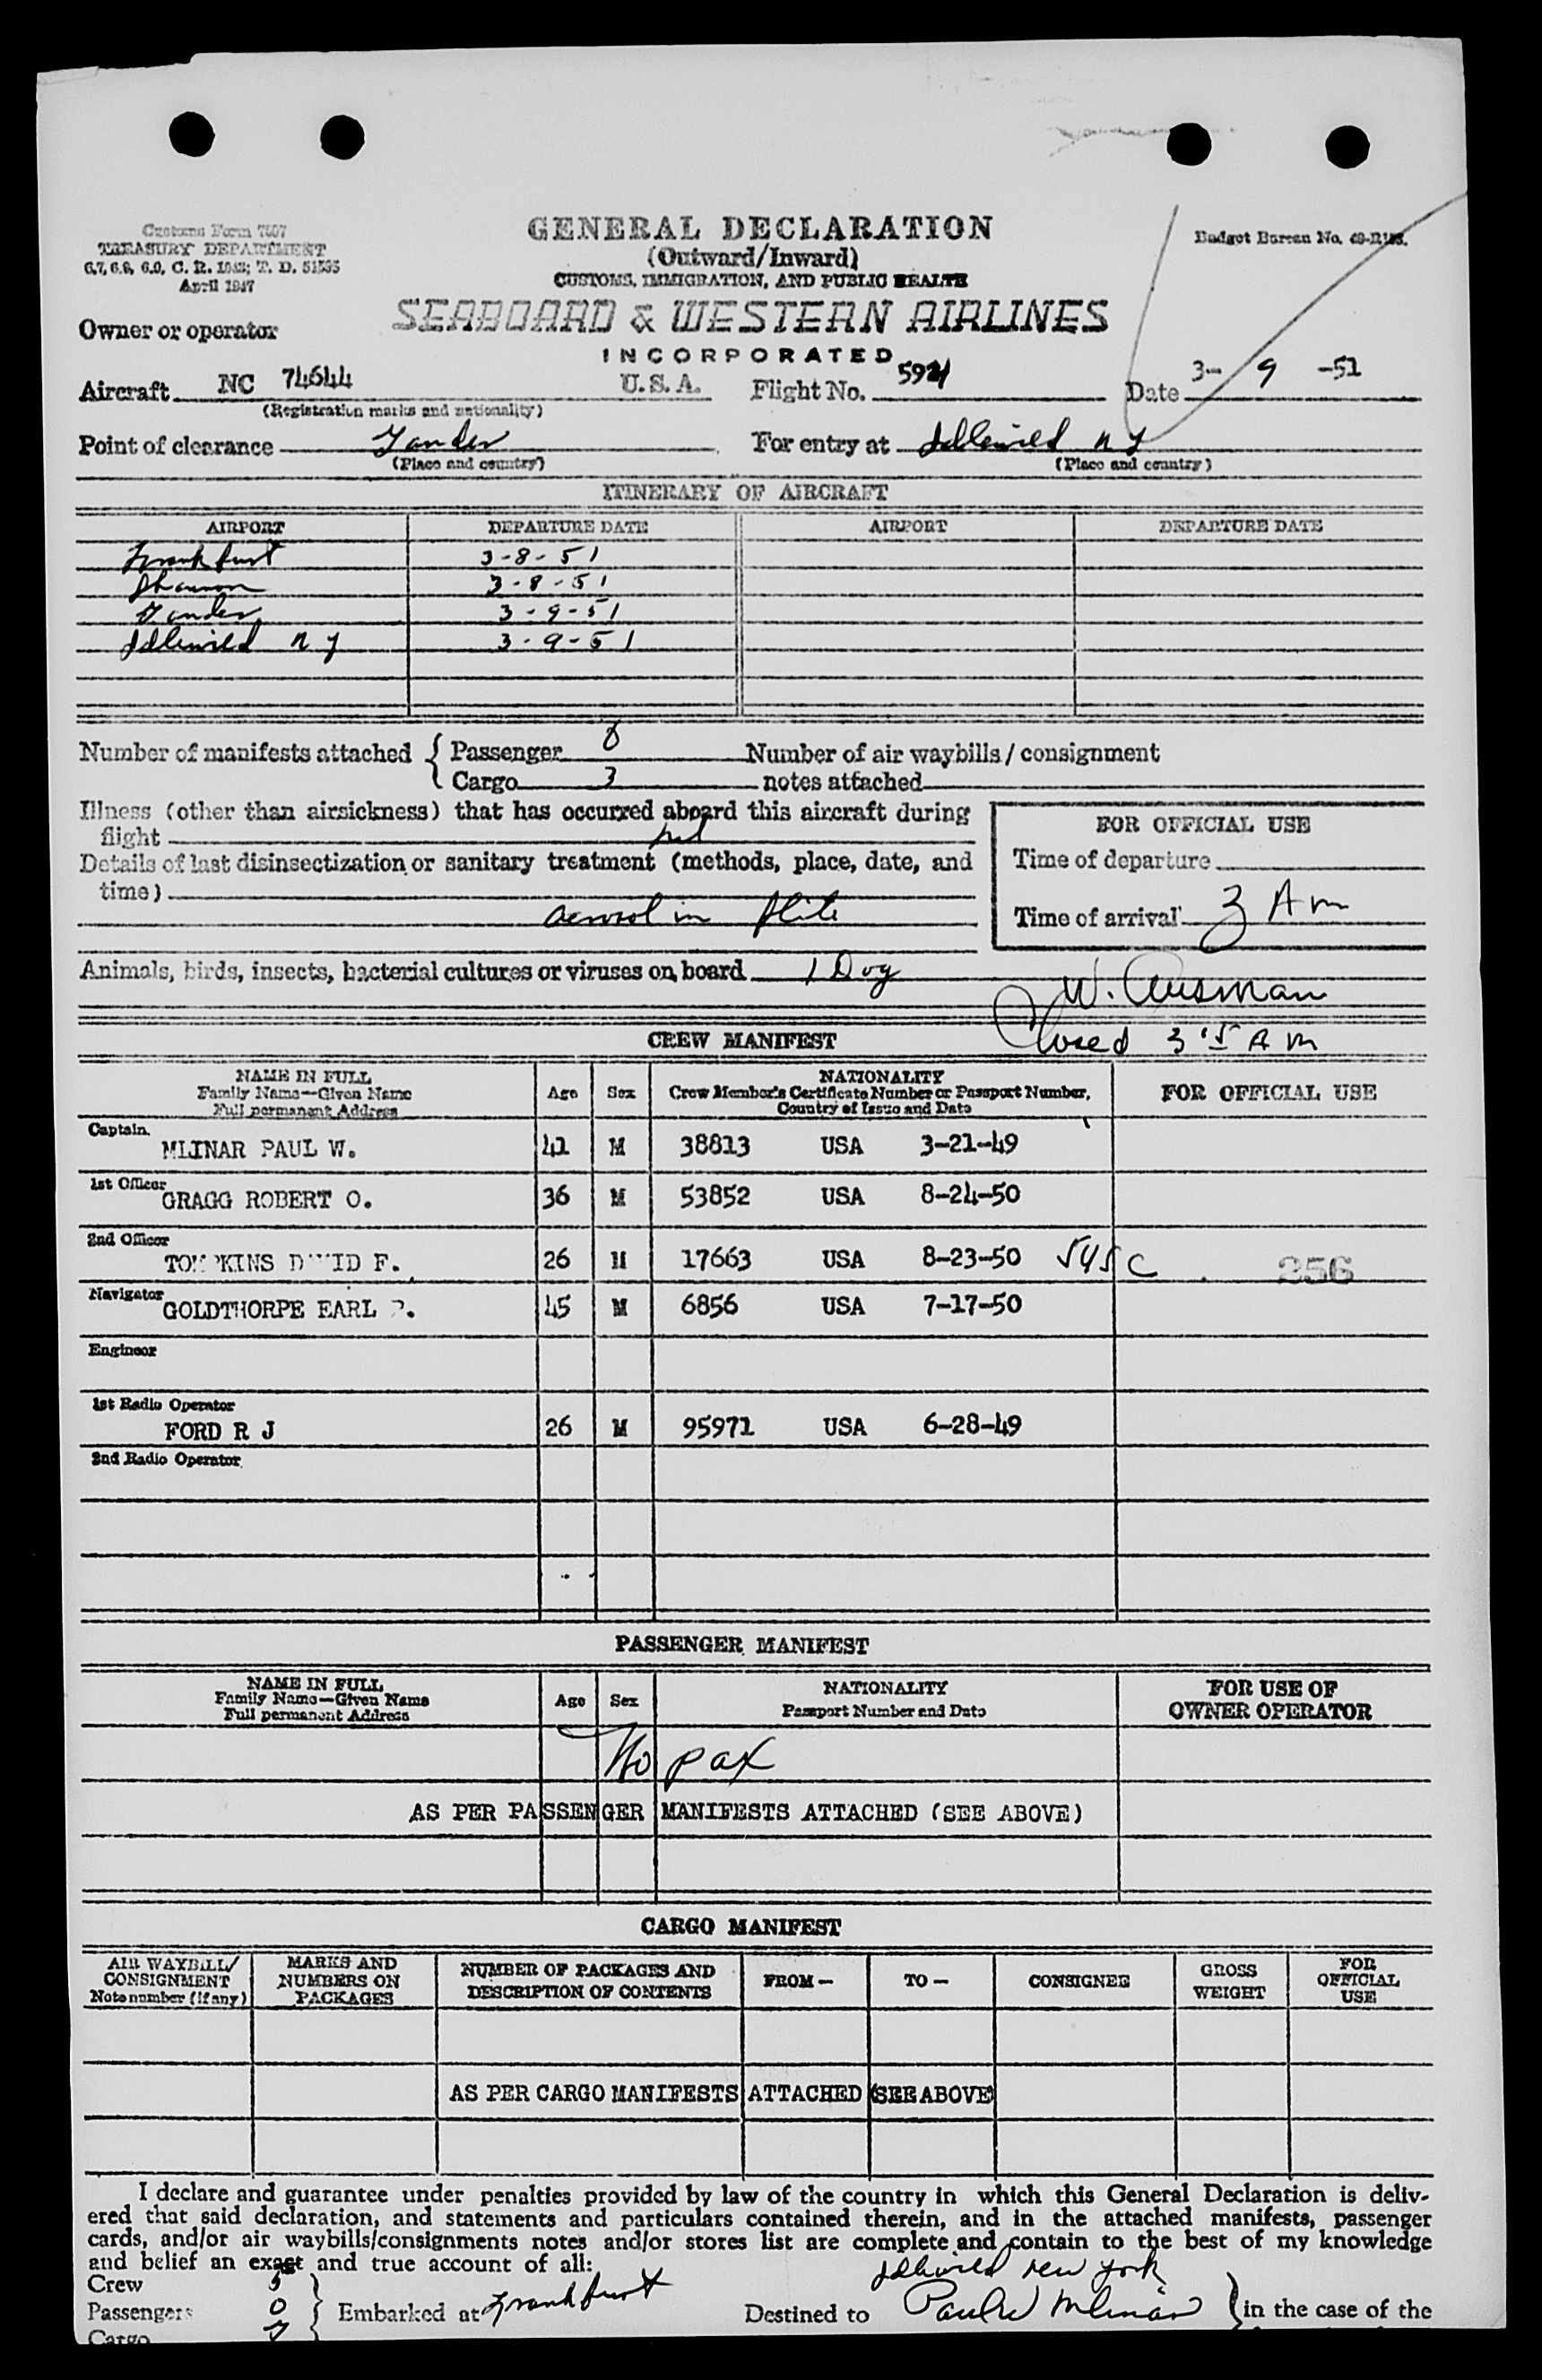 Customs Form 7507
TREASURY DEPARTMENT
April 1947
GENERAL DECLARATION
(Outward/Inward)
CUSTOMS, IMMIGRATION, AND PUBLIC HEALTH
Budget Bureau No.
Owner or operator
SEABOARD & WESTERN AIRLINES
INCORPORATED
Aircraft NC 74644 U.S.A. Flight No. Date 3- 9 -51
(Registration marks and nationality)
Point of clearance Gander For entry at Idlewild N Y
(Place and country) (Place and country)
ITINERARY OF AIRCRAFT
AIRPORT DEPARTURE DATE AIRPORT DEPARTURE DATE
Frankfurt 3-8-51
Shannon 3-8-51
Gander 3-9-51
Idlewild N Y 3-9-51
Number of manifests attached { Passenger Number of air waybills / consignment
Cargo 3 notes attached
Illness (other than airsickness) that has occurred aboard this aircraft during
flight
FOR OFFICIAL USE
Details of last disinsectization or sanitary treatment (methods, place, date, and
time)
Time of departure
aerosol in flite
Time of arrival 3 AM
Animals, birds, insects, bacterial cultures or viruses on board 1 Dog
W. Ausman
CREW MANIFEST
Closed 3 15 AM
NAME IN FULL
Family Name—Given Name
Full permanent Address
Age Sex
NATIONALITY
Crew Member's Certificate Number or Passport Number,
Country of Issue and Date
FOR OFFICIAL USE
Captain
MLINAR PAUL W. 41 M 38813 USA 3-21-49
1st Officer
GRAGG ROBERT O. 36 M 53852 USA 8-24-50
2nd Officer
TOMPKINS D F. 26 M 17663 USA 8-23-50 545 C 256
Navigator
GOLDTHORPE EARL 45 M 6856 USA 7-17-50
Engineer
1st Radio Operator
FORD R J 26 M 95971 USA 6-28-49
2nd Radio Operator
PASSENGER MANIFEST
NAME IN FULL
Family Name—Given Name
Full permanent Address
Age Sex
NATIONALITY
Passport Number and Date
FOR USE OF
OWNER OPERATOR
No pax
AS PER PASSENGER MANIFESTS ATTACHED (SEE ABOVE)
CARGO MANIFEST
AIR WAYBILL/
CONSIGNMENT
Note number (if any)
MARKS AND
NUMBERS ON
PACKAGES
NUMBER OF PACKAGES AND
DESCRIPTION OF CONTENTS
FROM —
TO —
CONSIGNEE
GROSS
WEIGHT
FOR
OFFICIAL
USE
AS PER CARGO MANIFESTS ATTACHED (SEE ABOVE)
I declare and guarantee under penalties provided by law of the country in which this General Declaration is deliv-
ered that said declaration, and statements and particulars contained therein, and in the attached manifests, passenger
cards, and/or air waybills/consignments notes and/or stores list are complete and contain to the best of my knowledge
and belief an exact and true account of all:
Idlewild New York
Crew 5
Passengers 0 } Embarked at Frankfurt Destined to Paul W Mlinar } in the case of the
Cargo